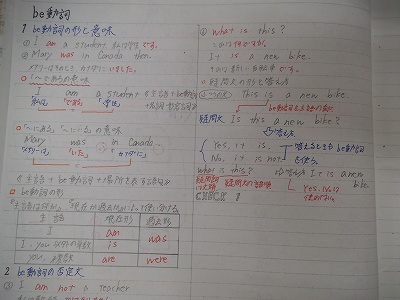 be動詞
1 be動詞の形と意味
① I am a student 私は学生です。
② Mary was in Canada then.
メアリーはそのとき カナダにいました。
○「〜である」の意味
I am a student
私は である 学生
○「〜にある」、「〜にいる」の意味
Mary was in Canada.
メアリーは いた カナダに
《主語+be動詞+場所を表す語句》
○ be動詞の形
主語 現在形 過去形
I am was
I・you 以外の単数 is
you, 複数 are were
2 be動詞の否定文
① I am not a teacher
① What is this?
これは何ですか。
It is a new bike.
それは新しい自転車です。
○ 疑問文の形と答え方
This is a new bike.
be動詞を主語の前に
疑問文 Is this a new bike?
答え方
Yes, it is.
No, it is not
答えるときも be動詞
を使う。
What is this?
答え方 It is a new
bike
疑問詞
は文頭
疑問文の語順
Yes, Noは
使わない。
CHECK 1